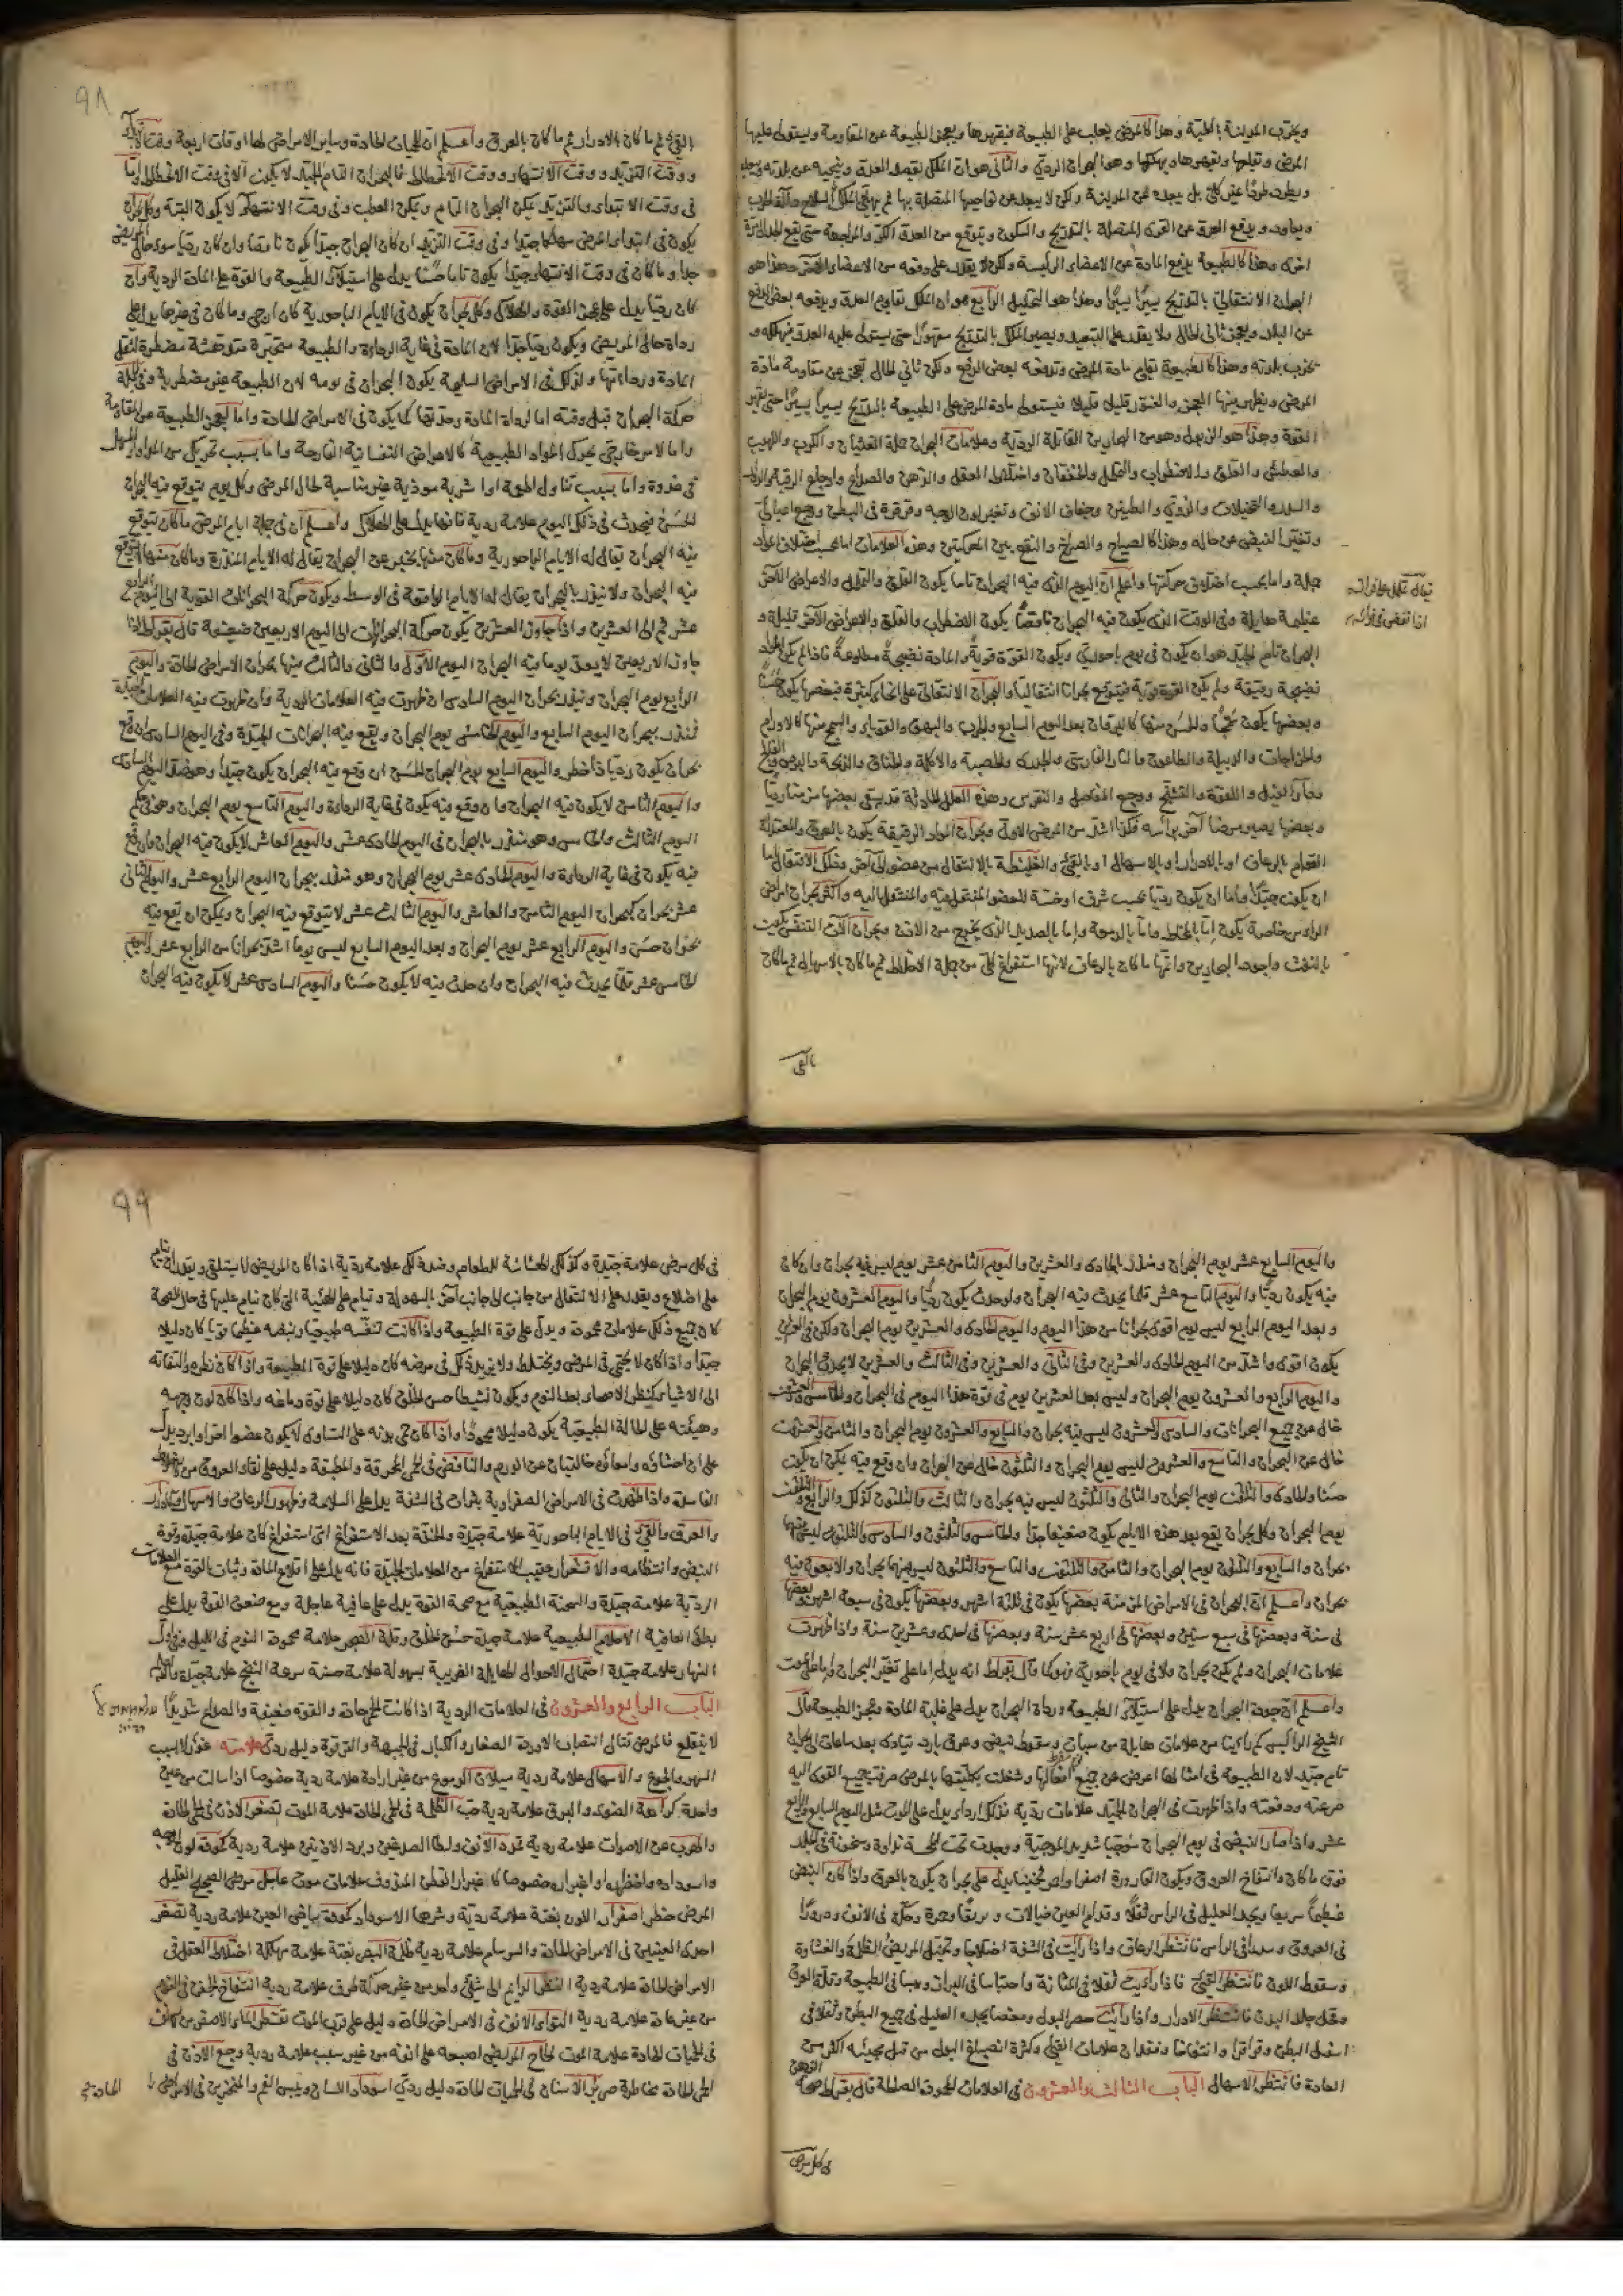 ويخرب المدينة بالحقيقة وهذا كالمرض يغلب على الطبيعة فيقهرها ويعجز الطبيعة عن المقاومة ويستولى عليها
المرض ويقبلها ويقهرها ويهلكها وهو البحران الردي والثاني هو ان الملك يقصد العدو وينحيه عن بلدته
ويطرده طردا غير كلي بل يبعده عن المدينة ولكن لا يبعده عن نواحيها المتصلة بها ثم
ويعاوده ويدفع العدو عن القرى المتصلة بالتدريج والسكون ويتوقع من العدو الكر والمراجعة حتى يقع
اخرى وهذا كالطبيعة يدفع المادة عن الاعضاء الرئيسة ولكن لا يقدر على دفعه من الاعضاء الأخر وهذا هو
البحران الانتقالي بالتدريج يسيرا يسيرا وهذا هو التحليل الرابع هو ان الملك يقاوم العدو ويدفعه بعض الدفع
عن البلد ويعجز ثاني الحال ولا يقدر على التبعيد ويصير الملك بالتدريج مقهورا حتى يستولى عليه العدو فيهلكه و
يخرب بلدته وهذا كالطبيعة يقاوم مادة المرض وتدفعه بعض الدفع ولكن ثاني الحال تعجز عن مقاومة مادة
المرض ويظهر منها العجز والخور قليلا قليلا فيستولى مادة المرض على الطبيعة بالتدريج يسيرا يسيرا حتى تقهر
القوة وهذا هو الذبول وهو من البحارين القاتلة الردية وعلامات البحران جملة الغثيان والكرب واللهيب
والعطش والقلق والاضطراب والخفقان واختلال العقل والذهن والصداع واوجاع الرقبة
والسدر والتخيلات والدوي والطنين وجفاف الانف وتغير لون الوجه وقرقرة في البطن ووجع
وتغير النبض عن حاله وهذا كالصياح والصراخ والنقع بين المعركتين وهذه العلامات اما بحسب اختلاف المواد
جملة واما بحسب اختلاف حركتها واعلم ان اليوم الذي فيه البحران تاما يكون القلق والتململ والاعراض الاخر
عظيمة هايلة وفي الوقت الذي يكون فيه البحران ناقصا يكون الاضطراب والقلق والاعراض الاخر قليلة و
البحران تام الجيد هو ان يكون في يوم باحوري ويكون القوة قوية والمادة نضيجة مطاوعة فاذا لم يكن المواد
نضيجة رقيقة ولم يكن القوة قوية فيتوقع بحرانا انتقاليا والبحران الانتقالي على انحاء كثيرة فبعضها يكون حسنا
وبعضها يكون سمجا والحسن منها كاليرقان بعد اليوم السابع والجرب والبهق والقوباء والسمج منها كالاورام
والخراجات والدبيلة والطاعون والنار الفارسي والجدري والحصبة والاكلة والخناق والذبحة والبرص
وداء الفيل واللقوة والتشنج ووجع المفاصل والنقرس وهذه العلل الحادثة قد يبقى بعضها مزمنا رديا
وبعضها يصير مرضا اخر براسه فكل اشد من المرض الاول وبحران المواد الرقيقة يكون بالعرق والمعتدلة
القوام بالرعاف او بالادرار او بالاسهال او بالقيء والغليظة بالانتقال من عضو الى آخر وذلك الانتقال اما
ان يكون جيدا واما ان يكون رديا بحسب شرف او خسة للعضو المنتقل عنه والمنتقل اليه واكثر بحران امراض
الراس خاصة يكون اما بالمخاط واما بالرمدة واما بالصديد الذي يخرج من الاذن وبحران آلات التنفس يكون
بالنفث واجود البحارين واتمها ما كان بالرعاف لانها استفراغ كلي من جملة الاخلاط ثم ما كان بالاسهال ثم ما كان
بالقي
٩٨
بالقيء ثم ما كان بالادرار ثم ما كان بالعرق واعلم ان للحميات الحادة وساير الامراض لها اوقات اربعة وقت الابتداء
ووقت التزيد ووقت الانتهاء ووقت الانحطاط فالبحران التام الجيد لا يكون الا في وقت الانحطاط واما
في وقت الابتداء والتزيد يمكن البحران التام ويمكن العطب وفي وقت الانتهاء لا يكون البتة وكل بحران
يكون في ابتداء المرض مهلكا جدا وفي وقت التزيد ان كان البحران جيدا يكون ناقصا وان كان رديا سوء حال المريض
جدا وما كان في وقت الانتهاء جيدا يكون تاما حسنا يدل على استيلاء الطبيعة والقوة على المادة الردية وان
كان رديا يدل على عجز القوة والهلاك وكل بحران يكون في الايام الباحورية كان ارجى وما كان في غيرها يدل على
رداءة حال المريض ويكون رديا جدا لان المادة في غاية الرداءة والطبيعة متحيرة متدهشة مضطرة لثقل
المادة ورداءتها ولذلك في الامراض السليمة يكون البحران في يومه لان الطبيعة غير مضطربة وفي
حركة البحران قبل وقته اما لرداءة المادة وحدتها كما يكون في الامراض الحادة واما لعجز الطبيعة عن المقاومة
واما لامر خارجي يحرك المواد الطبيعية كالاعراض النفسانية الفادحة واما بسبب تحريك من
في غدوة واما بسبب تناول اطعمة او اشربة موذية غير مناسبة لحال المرض وكل يوم يتوقع فيه البحران
الحسن فيحدث في ذلك اليوم علامة ردية فانها يدل على الهلاك واعلم ان في جملة ايام المرض ما كان يتوقع
فيه البحران يقال له الايام الباحورية وما كان منها يخبر عن البحران يقال له الايام المنذرة وما كان منها يقع
فيه البحران ولا ينذر بالبحران يقال له الايام الواقعة في الوسط ويكون حركة البحرانات القوية الى اليوم الرابع
عشر ثم الى العشرين واذا جاوز العشرين يكون حركة البحرانات الى اليوم الاربعين ضعيفة قال بقراط اذا
جاوز الاربعين لا يعد يوما فيه البحران اليوم الاول والثاني والثالث منها بحران الامراض الحادة واليوم
الرابع يوم البحران وينذر بحران اليوم السادس ان ظهرت فيه العلامات الردية وان ظهرت فيه العلامات الجيدة
فينذر ببحران اليوم السابع واليوم الخامس يوم البحران ويقع فيه البحرانات الجيدة وفي اليوم السادس ان وقع
بحران يكون رديا ذا خطر واليوم السابع يوم البحران الحسن ان وقع فيه البحران يكون جيدا وهو ضد اليوم السادس
واليوم الثامن لا يكون فيه البحران وان وقع فيه يكون في غاية الرداءة واليوم التاسع يوم البحران وهو في حكم
اليوم الثالث والخامس وهو منذر بالبحران في اليوم الحادي عشر واليوم العاشر لا يكون فيه البحران وان وقع
فيه يكون في غاية الرداءة واليوم الحادي عشر يوم البحران وهو منذر ببحران اليوم الرابع عشر واليوم الثاني
عشر بحران كبحران اليوم الثامن والعاشر واليوم الثالث عشر لا يتوقع فيه البحران ويمكن ان يقع فيه
بحران حسن واليوم الرابع عشر يوم البحران وبعد اليوم السابع ليس يوما اشد بحرانا من الرابع عشر واليوم
الخامس عشر قلما يحدث فيه البحران وان حدث فيه لا يكون حسنا واليوم السادس عشر لا يكون فيه البحران
واليوم السابع عشر يوم البحران ومنذر بالحادي والعشرين واليوم الثامن عشر يوم ليس فيه بحران وان كان
فيه يكون رديا واليوم التاسع عشر قلما يحدث فيه البحران ولو حدث يكون رديا واليوم العشرون يوم البحران
وبعد اليوم الرابع ليس يوم اقوى بحرانا من هذا اليوم واليوم الحادي والعشرين يوم البحران ولكن في
يكون اقوى واشد من اليوم الحادي والعشرين وفي الثاني والعشرين وفي الثالث والعشرين لا يحدث البحران
واليوم الرابع والعشرون يوم البحران وليس بعد العشرين يوم في قوة هذا اليوم في البحران والخامس والعشرون
خال عن جميع البحرانات والسادس والعشرون ليس فيه بحران والسابع والعشرون يوم البحران والثامن والعشرون
خال عن البحران والتاسع والعشرون ليس يوم البحران والثلثون خال عن البحران وان وقع فيه يمكن ان يكون
حسنا والحادي والثلثون يوم البحران والثاني والثلثون ليس فيه بحران والثالث والثلثون كذلك والرابع والثلثون
يوم البحران وكل بحران يقع بعد هذه الايام يكون ضعيفا جدا والخامس والثلثون والسادس والثلثون ليس فيها
بحران والسابع والثلثون يوم البحران والثامن والثلثون والتاسع والثلثون ليس فيها بحران والاربعون فيه
بحران واعلم ان البحران في الامراض المزمنة بعضها يكون في ثلثة اشهر وبعضها يكون في سبعة اشهر وبعضها
في سنة وبعضها في سبع سنين وبعضها في اربع عشر سنة وبعضها في احدى وعشرين سنة واذا ظهرت
علامات البحران ولم يكن بحران ولا في يوم باحورية فهو كما قال بقراط انه يدل اما على تعذر البحران او اما على الموت
واعلم ان جودة البحران يدل على استيلاء الطبيعة ورداءة البحران يدل على غلبة المادة وعجز الطبيعة قال
الشيخ الرئيس كم راينا من علامات هايلة من سبات وسقوط نبض وعرق بارد يتادى بعد ساعات الى بحران
تام جيد لان الطبيعة في امثالها اعرض عن جميع افعالها وشغلت بكليتها بالمرض صرفت جميع القوى اليه
صرعته ودفعته واذا ظهرت في البحران الجيد علامات ردية فذلك اردا يدل على الموت مثل اليوم السابع والرابع
عشر واذا صار النبض في يوم البحران موجيا شديد الموجية ووجدت تحت المجسة نداوة وسخونة في الجلد
فوق ما كان وانتفاخ العروق ويكون القارورة اصفر واحمر ثخينا يدل على بحران يكون بالعرق واذا كان النبض
عظيما سريعا ويجد العليل في الراس ثقلا وقدام العين خيالات وبريقا وحمرة وحكة في الانف ودرورا
في العروق وصداع الراس فانتظر الرعاف واذا رايت في الشفة اختلاجا وتخيل المريض الظلمة والغشاوة
وسقوط اللون فانتظر القيء فاذا رايت ثقلا في المثانة واحتباسا في البراز ويبسا في الطبيعة وقلة العرق
وقحل جلد البدن فانتظر الادرار واذا رايت حصر البول ومغصا يجده العليل في جميع البطن وثقلا في
اسفل البطن وقراقرا وانتفاخا وفقدان علامات القيء وكثرة انصباغ البول من قبل مجيئه اكثر من
العادة فانتظر الاسهال الباب الثالث والعشرون في العلامات المحمودة الصالحة قال بقراط صحة الذهن
في كل مرض
٩٩
في كل مرض علامة جيدة وكذلك الهشاشة للطعام وضده كل علامة ردية اذا كان المريض لا يستلقي ويقدر ان ينام
على اضلاع ويقدر على الانتقال من جانب الى جانب اخر بسهولة وينام على الهيئة التي كان ينام عليها في حال الصحة
كان جميع ذلك علامات محمودة ويدل على قوة الطبيعة واذا كانت تنفسه طبيعيا ونبضه عظيما قويا كان دليلا
جيدا واذا كان لا يجتى في المرض ويختلط ولا يزيد ذلك في مرضه كان دليلا على قوة الطبيعة واذا كان نظره والتفاته
الى الاشياء كنظر الاصحاء بعد النوم ويكون نشيطا حسن الخلق كان دليلا على قوة دماغه واذا كان لون وجهه
وهيئته على الحالة الطبيعية يكون دليلا محمودا واذا كان حمى بدنه على التساوي لا يكون عضوا احر او ابرد يدل
على ان احشاءه وامعاءه خاليتان عن الورم والنافض في الحمى المحرقة والمطبقة دليل على نقاء العروق من الاخلاط
الفاسدة واذا ظهرت في الامراض الصفراوية بثرات في الشفة يدل على السلامة وظهور الرعاف والاسهال والادرار
والعرق والقيء في الايام الباحورية علامة جيدة والخفة بعد الاستفراغ اي استفراغ كان علامة جيدة وقوة
النبض وانتظامه والاستقرار عقيب الاستفراغ من العلامات الجيدة فانه يدل على اقلاع المادة وثبات القوة مع العلامات
الردية علامة جيدة والسحنة الطبيعية مع صحة القوة يدل على عافية عاجلة ومع ضعف القوة يدل على
بطئ العافية الاحلام الطبيعية علامة جيدة حسن الخلق وقلة الضجر علامة محمودة النوم في الليل وفي اول
النهار علامة جيدة احتمال الاحوال الهايلة الغريبة بسهولة علامة حسنة سرعة النضج علامة جيدة والله اعلم
الباب الرابع والعشرون في العلامات الردية اذا كانت الحمى حادة والقوة ضعيفة والصداع شديدا
لا ينقلع فالمرض قتال انتصاب الاوردة الصغار والكبار في الجبهة والترقوة دليل ردي علامة غور العين لا بسبب
السهر والجوع والاسهال علامة ردية سيلان الدموع من غير ارادة علامة ردية خصوصا اذا سالت من عين
واحدة كراهة الضوء والبرق علامة ردية حب الظلمة في الحمى الحادة علامة الموت تصغر الاذن في الحمى الحادة
والهرب عن الاصوات علامة ردية تمدد الانف ولطا الصدغين وبرد الاذنين علامة ردية كمودة لون الوجه
واسوداده واخضراره او اغبراره خصوصا كاغبرار القطن المندوف علامات موت عاجل مرض الصحيح القليل
المرض خطر اصفرار اللون بغتة علامة ردية وشرها الاسوداد كمودة بياض العين علامة ردية تصغر
احدى العينين في الامراض الحادة والسرسام علامة ردية ظلمة البصر بغتة علامة مهلكة اختلاط العقل في
الامراض الحادة علامة ردية النظر الدايم الى شيء واحد من غير حركة طرف علامة ردية انتفاخ الجفن في النوم
من غير عادة علامة ردية التواء الانف في الامراض الحادة دليل على قرب الموت تقطر الماء الاصفر من الانف
في الحميات الحادة علامة الموت الحاح المريض اصبعه على انفه من غير سبب علامة ردية وجع الاذن في
الحمى الحادة مخاطرة صرير الاسنان في الحميات الحادة دليل ردي اسوداد اللسان ويبس الفم والمنخرين في الامراض
الحادة